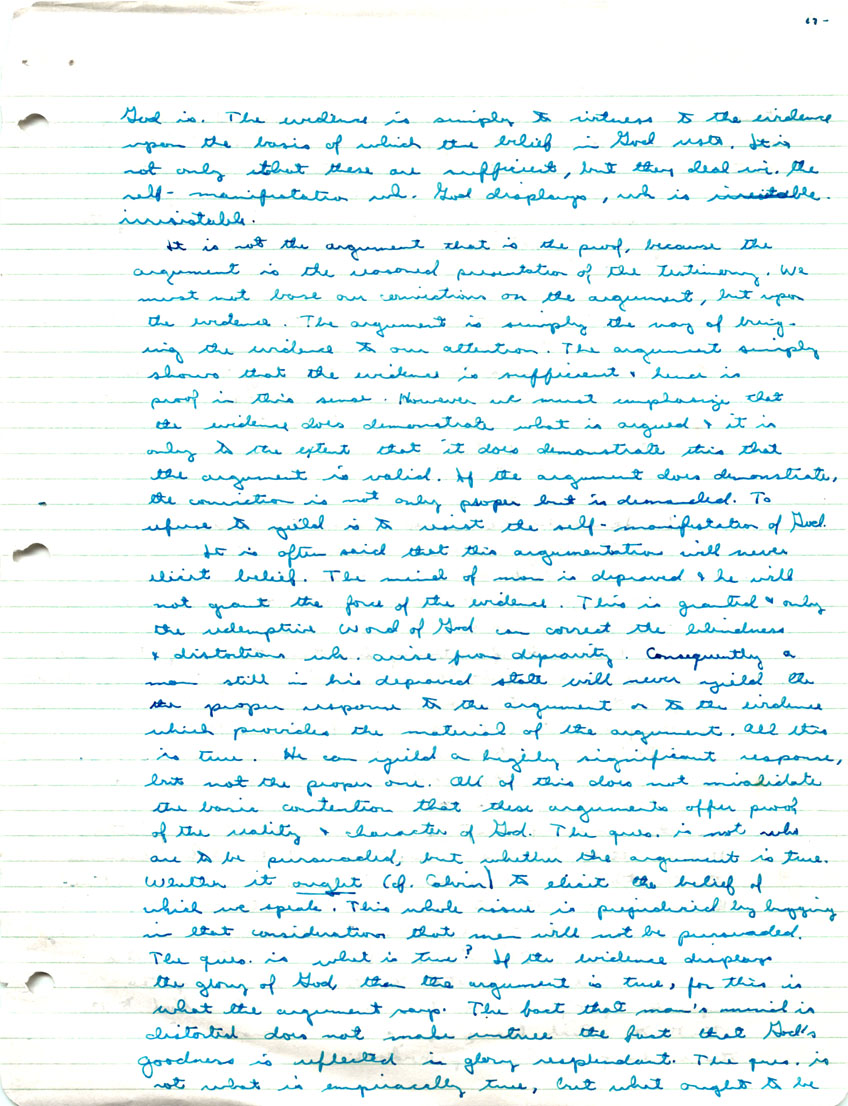 67-
God is. The evidence is simply to witness to the evidence
upon the basis of which the belief in God rests. It is
not only that these are sufficient, but they deal wi. the
self-manifestation wh. God displays, wh is
irresistable.
It is not the argument that is the proof, because the
argument is the reasoned presentation of the testimony. We
must not base our convictions on the argument, but upon
the evidence. The argument is simply the way of bring-
ing the evidence to our attention. The argument simply
shows that the evidence is sufficient & hence is
proof in this sense. However we must emphasize that
the evidence does demonstrate what is argued & it is
only to the extent that it does demonstrate this that
the argument is valid. If the argument does demonstrate,
the conviction is not only proper but is demanded. To
refuse to yeild is to resist the self-manifestation of God.
It is often said that this argumentation will never
elicit belief. The mind of man is depraved & he will
not grant the force of the evidence. This is granted & only
the redemptive Word of God can correct the blindness
& distortions wh. arise from depravity. Consequently a
man still in his depraved state will never yield the
the proper response to the argument or to the evidence
which provides the material of the argument. All this
is true. He can yeild a highly significant response,
but not the proper one. All of this does not invalidate
the basic contention that these arguments offer proof
of the reality & character of God. The ques. is not who
are to be pursuaded, but whether the argument is true.
Whether it ought (cf. Calvin) to elicit the belief of
which we speak. This whole issue is prejudiced by bringing
in that consideration that men will not be pursuaded.
The ques. is what is true? If the evidence displays
the glory of God then the argument is true, for this is
what the argument says. The fact that man's mind is
distorted does not make untrue the fact that God's
goodness is reflected in glory resplendant. The ques. is
not what is empiracally true, but what ought to be